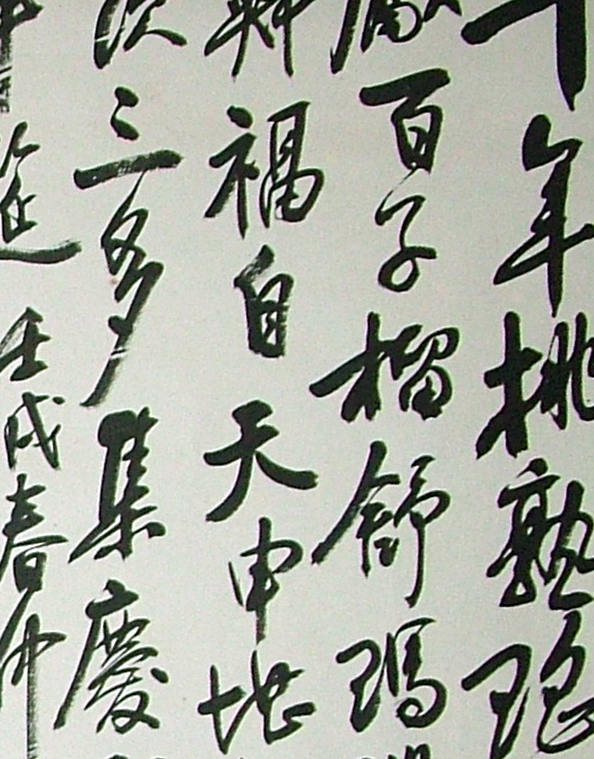 千年桃熟
百子榴舒瑪
福自天申地
三多集慶
筵壬戌春仲